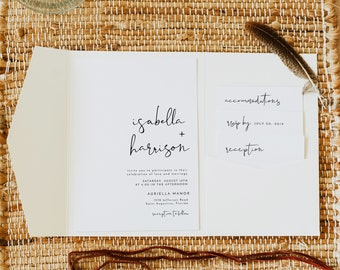 isabella
+
harrison
invite you to participate in their
celebration of love and marriage
SATURDAY, AUGUST 10TH
AT 4:00 IN THE AFTERNOON
AURIELLA MANOR
1978 Jefferson Road
Saint Augustine, Florida
reception to follow
accommodations
rsvp by JULY 20, 2019
reception